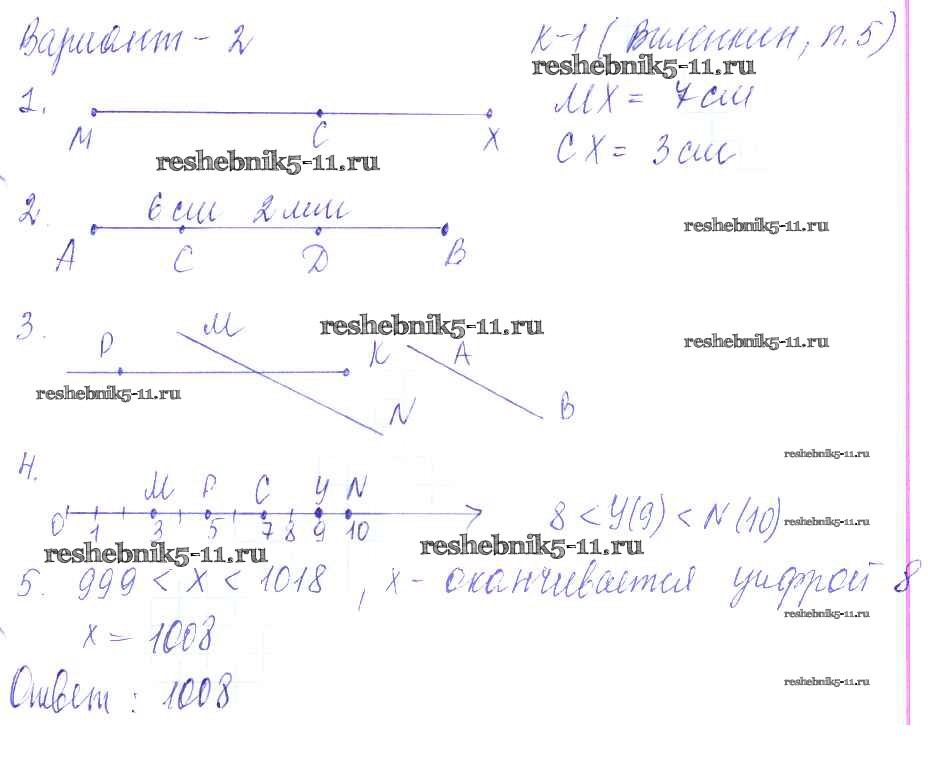 Вариант - 2 К-1 (Виленкин, п.5)
reshebnik5-11.ru
1. МХ = 7 см
М С Х
СХ = 3 см
reshebnik5-11.ru
2. 6 см 2 мм
reshebnik5-11.ru
А С D В
3. М
reshebnik5-11.ru
Р К А
reshebnik5-11.ru
reshebnik5-11.ru
N В
4.
reshebnik5-11.ru
М Р С У N
0 1 3 5 7 8 9 10
8 < У(9) < N(10)
reshebnik5-11.ru
reshebnik5-11.ru
reshebnik5-11.ru
5. 999 < х < 1018, х - оканчивается цифрой 8
reshebnik5-11.ru
х = 1008
Ответ: 1008
reshebnik5-11.ru